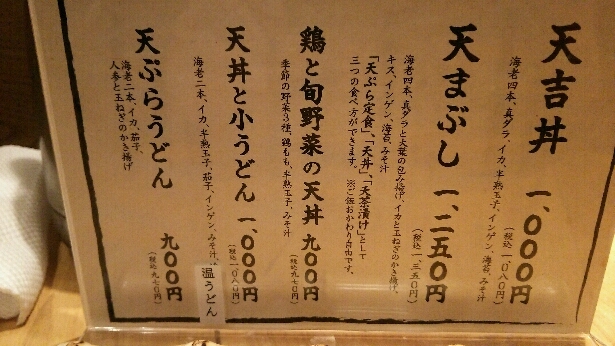 天吉丼 一、〇〇〇円
海老四本、真ダラ、イカ、半熟玉子、インゲン、海苔、みそ汁
(税込一、〇八〇円)
天まぶし 一、二五〇円
海老四本、真ダラと大葉の包み揚げ、イカと玉ねぎのかき揚げ、
キス、インゲン、海苔、みそ汁
(税込一、三五〇円)
「天ぷら定食」、「天丼」、「天茶漬け」として
三つの食べ方ができます。 ※ご飯おかわり自由です。
鶏と旬野菜の天丼 九〇〇円
季節の野菜3種、鶏もも、半熟玉子、みそ汁
(税込九七〇円)
天丼と小うどん 一、〇〇〇円
海老二本、イカ、半熟玉子、茄子、インゲン、みそ汁、
(税込一、〇八〇円)
温うどん
天ぷらうどん 九〇〇円
海老二本、イカ、茄子、
人参と玉ねぎのかき揚げ
(税込九七〇円)